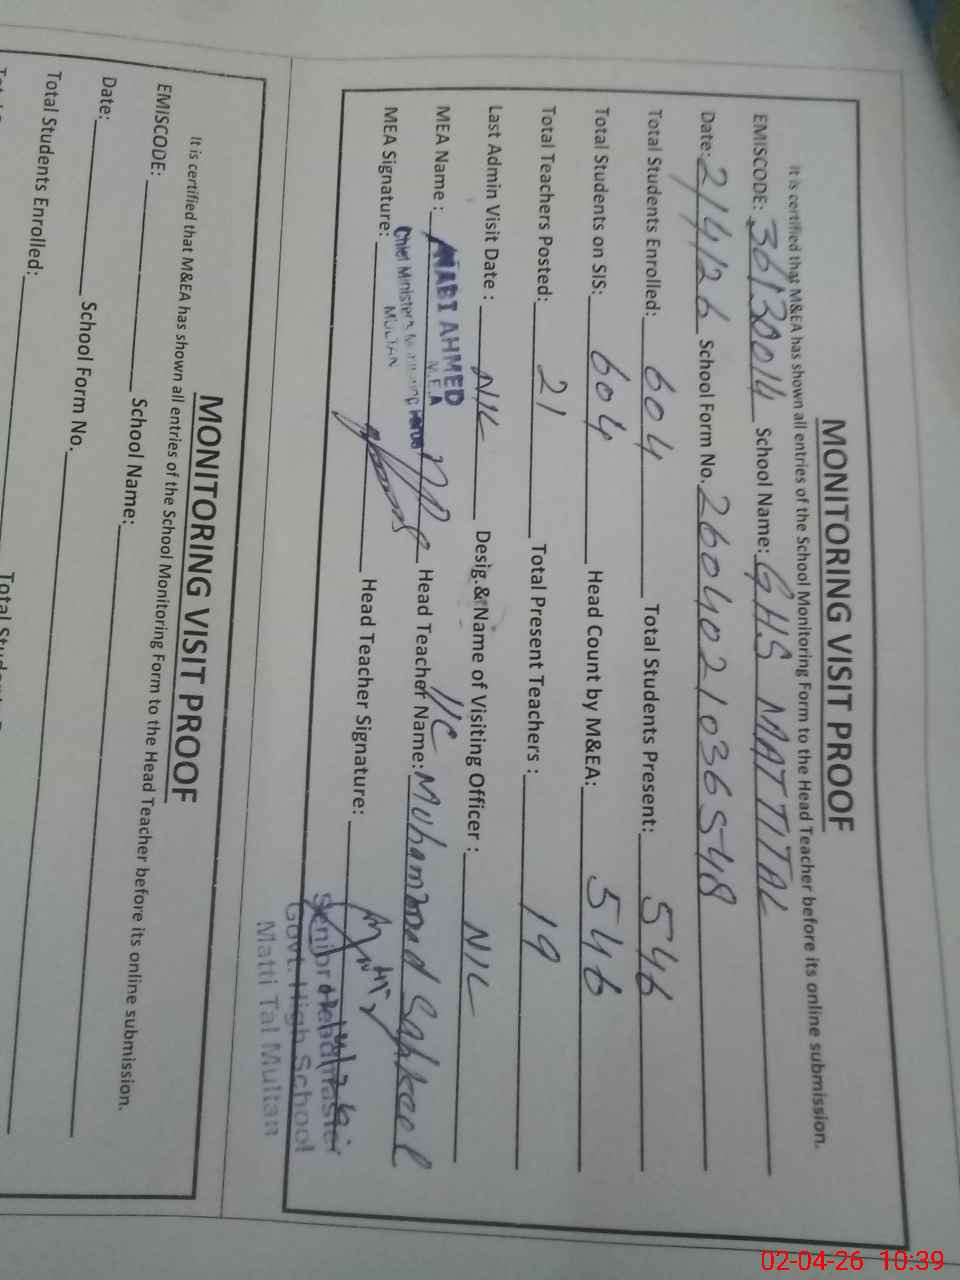 MONITORING VISIT PROOF
It is certified that M&EA has shown all entries of the School Monitoring Form to the Head Teacher before its online submission.
EMISCODE: 36130014 School Name: GHS MATTITAL
Date: 2/4/26 School Form No. 2604021036548
Total Students Enrolled: 604 Total Students Present: 546
Total Students on SIS: 604 Head Count by M&EA: 546
Total Teachers Posted: 21 Total Present Teachers : 19
Last Admin Visit Date : NIL Desig.& Name of Visiting Officer : NIL
MEA Name : NABI AHMED Head Teacher Name: Muhammad
M.E.A
Chief Minister's Monitoring Force
MULTAN
MEA Signature: Head Teacher Signature:
I/C
Senior Headmaster
Govt. High School
Matti Tal Multan
MONITORING VISIT PROOF
It is certified that M&EA has shown all entries of the School Monitoring Form to the Head Teacher before its online submission.
EMISCODE: School Name:
Date: School Form No.
Total Students Enrolled:
02-04-26 10:39